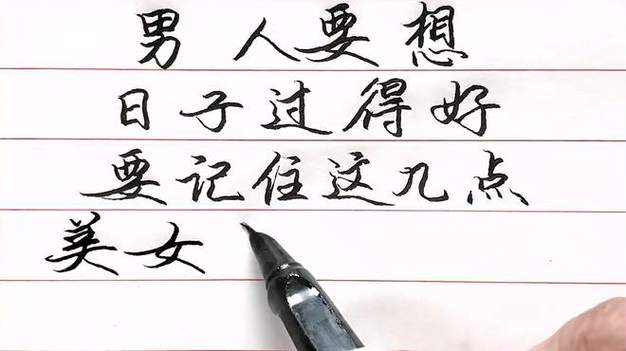 男人要想
日子过得好
要记住这几点
美女